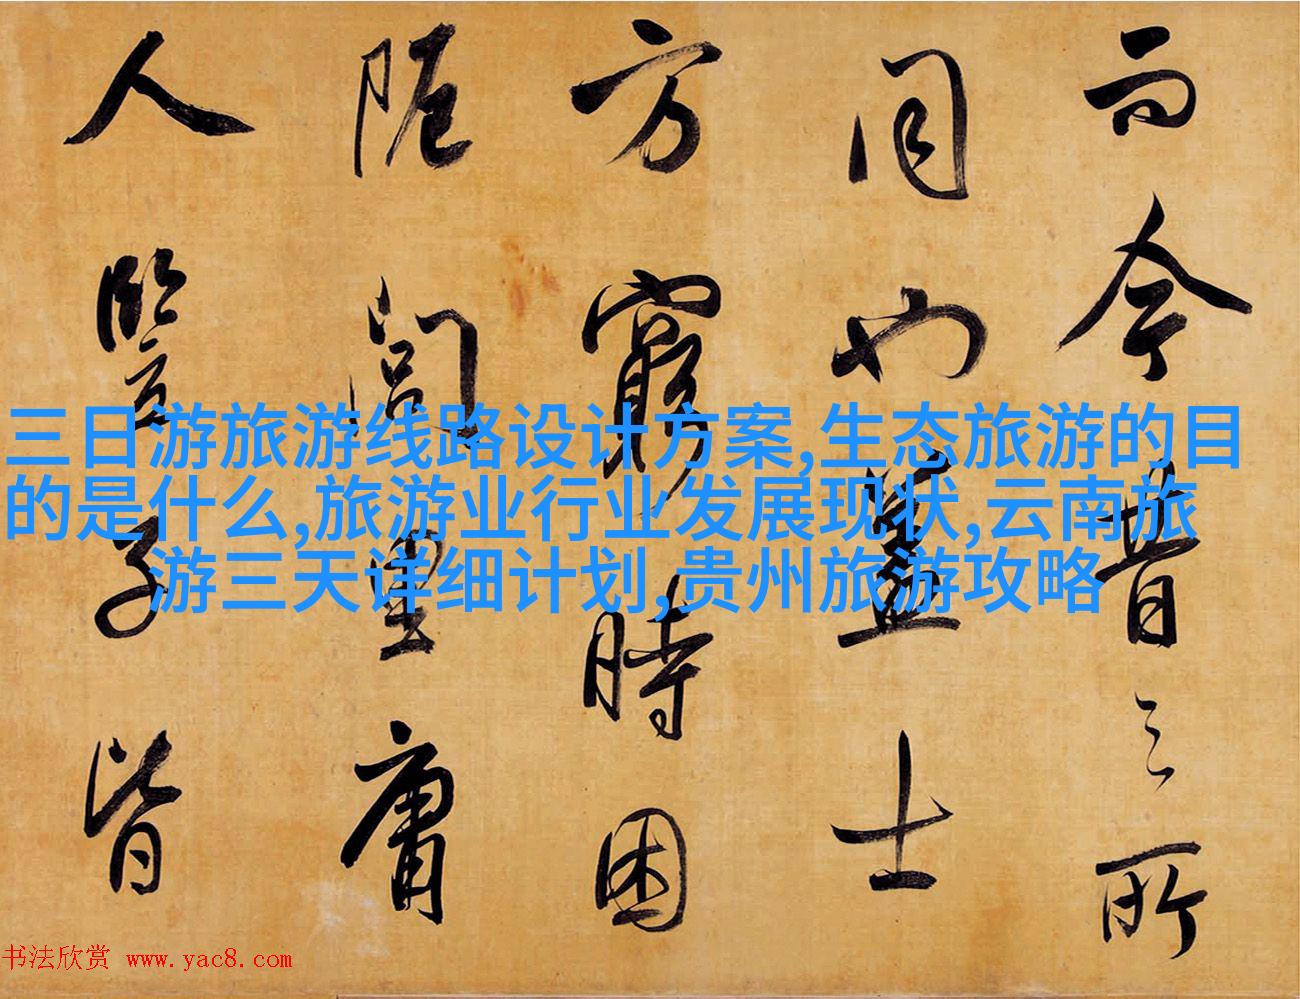 而今昔之所
同也盖士
方窮時困
阨閭里庸
人豎子皆
三日游旅游线路设计方案,生态旅游的目
的是什么,旅游业行业发展现状,云南旅
游三天详细计划,贵州旅游攻略
书法欣赏 www.yac8.com